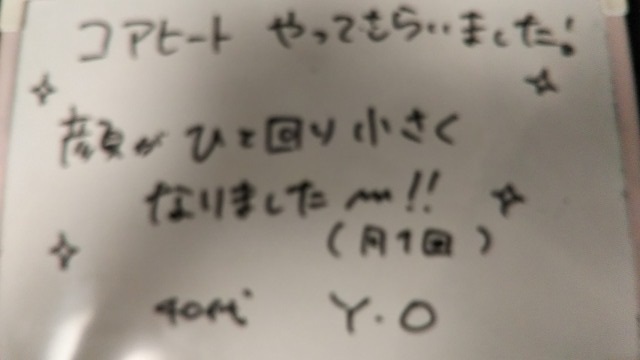 コアヒート やってもらいました!
顔がひと回り小さく
なりました m!!
(月1回)
40代 Y.O